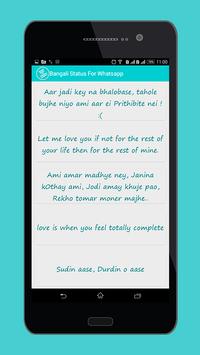 11:00
Bangali Status For Whatsapp
Aar jadi key na bhalobase, tahole
bujhe niyo ami aar ei Prithibite nei !
:(
Let me love you if not for the rest of
your life then for the rest of mine.
Ami amar madhye ney, Janina
kOthay ami, Jodi amay khuje pao,
Rekho tomar moner majhe..
love is when you feel totally complete
Sudin aase, Durdin o aase